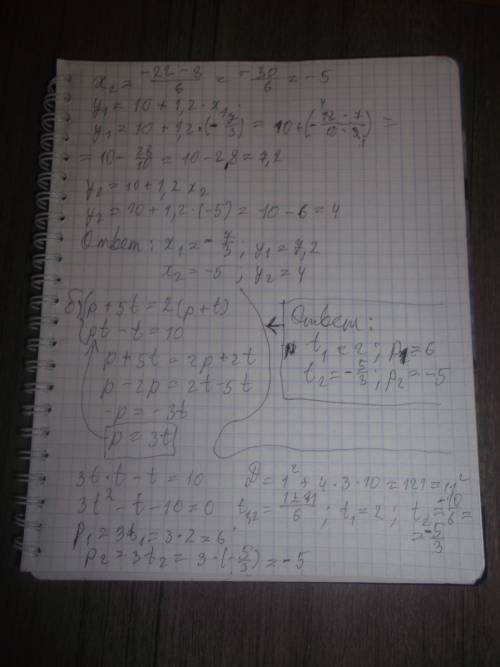 x₂ = (-22 - 8)/6 = -30/6 = -5
y₁ = 10 + 1,2 · x₁
y₁ = 10 + 1,2 · (-7/3) = 10 + (-12 · 7/10 · 3) =
= 10 - 28/10 = 10 - 2,8 = 7,2
y₂ = 10 + 1,2 x₂
y₂ = 10 + 1,2 · (-5) = 10 - 6 = 4
Ответ: x₁ = -7/3; y₁ = 7,2
x₂ = -5; y₂ = 4
б) { p + 5t = 2(p + t)
pt - t = 10
p + 5t = 2p + 2t
p - 2p = 2t - 5t
-p = -3t
p = 3t
Ответ:
t₁ = 2; p₁ = 6
t₂ = -5/3; p₂ = -5
3t · t - t = 10
3t² - t - 10 = 0
D = 1² + 4 · 3 · 10 = 121 = 11²
t₁,₂ = (1 ± 11)/6; t₁ = 2; t₂ = -10/6 =
= -5/3
p₁ = 3t₁ = 3 · 2 = 6
p₂ = 3t₂ = 3 · (-5/3) = -5